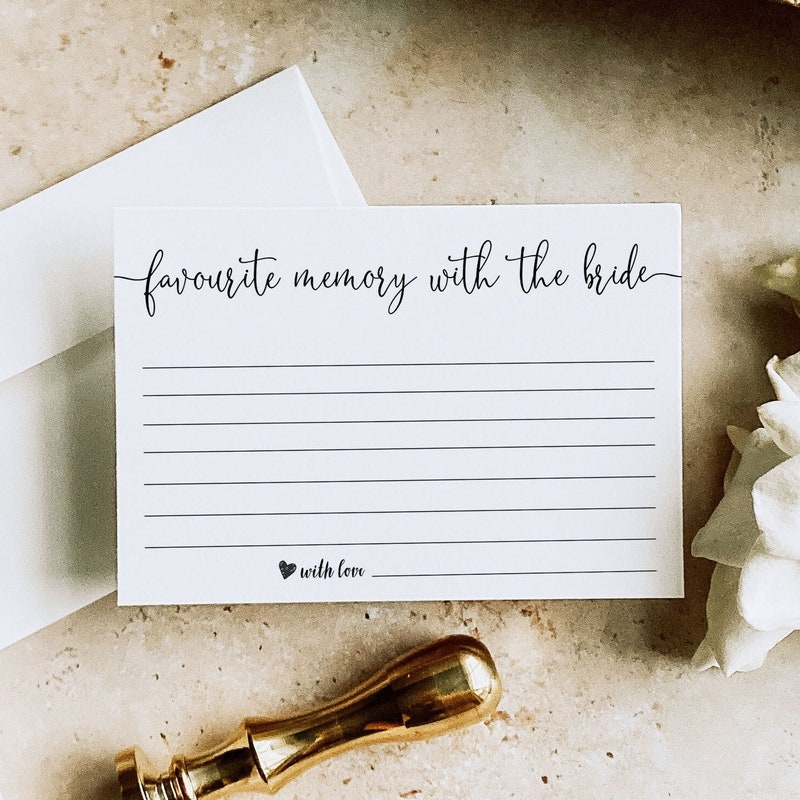 favourite memory with the bride
with love